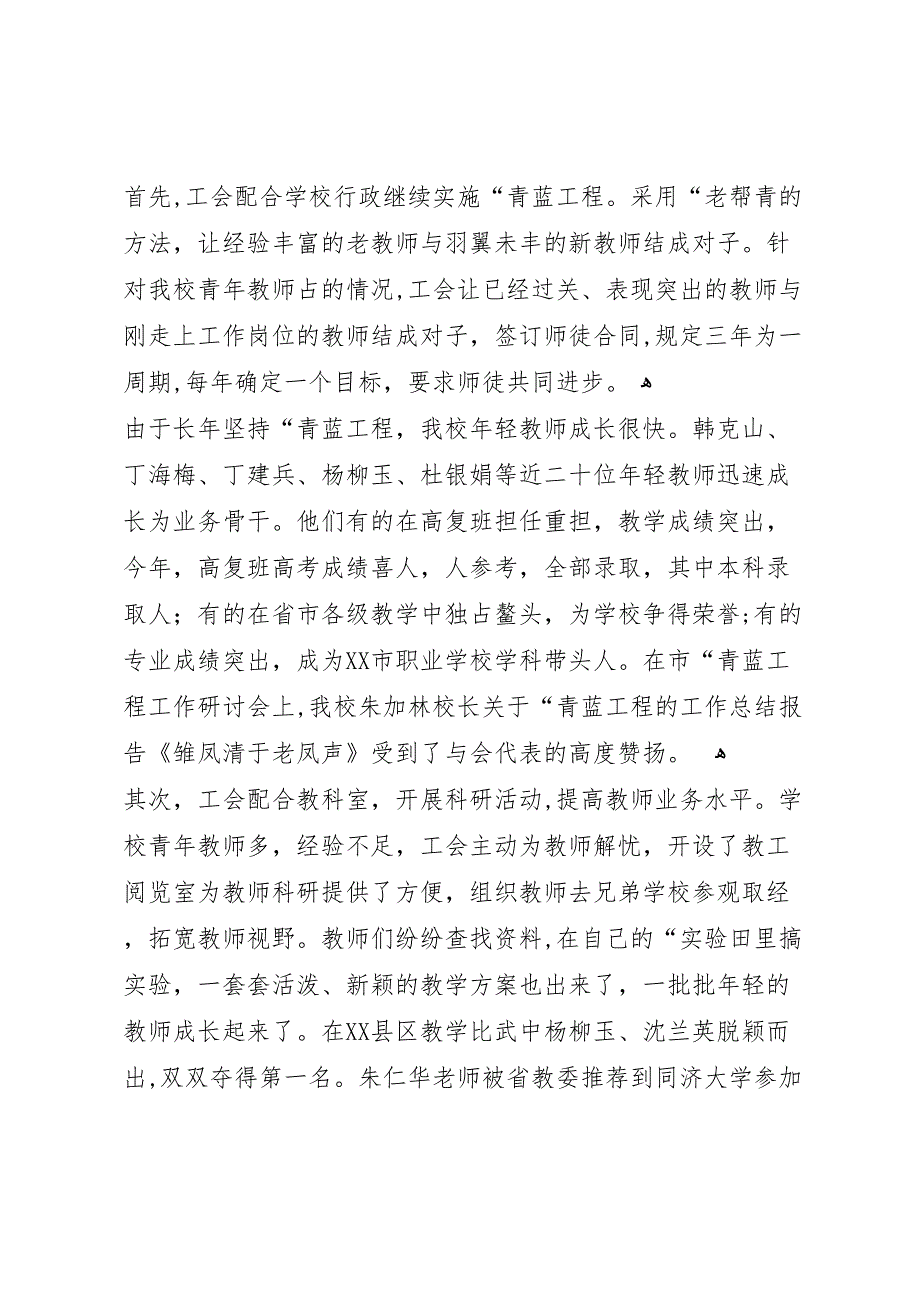 首先,工会配合学校行政继续实施“青蓝工程。采用“老帮青的
方法，让经验丰富的老教师与羽翼未丰的新教师结成对子。针
对我校青年教师占的情况,工会让已经过关、表现突出的教师与
刚走上工作岗位的教师结成对子，签订师徒合同,规定三年为一
周期,每年确定一个目标，要求师徒共同进步。 ﻫ
由于长年坚持“青蓝工程，我校年轻教师成长很快。韩克山、
丁海梅、丁建兵、杨柳玉、杜银娟等近二十位年轻教师迅速成
长为业务骨干。他们有的在高复班担任重担，教学成绩突出，
今年，高复班高考成绩喜人，人参考，全部录取，其中本科录
取人；有的在省市各级教学中独占鳌头，为学校争得荣誉;有的
专业成绩突出，成为XX市职业学校学科带头人。在市“青蓝工
程工作研讨会上,我校朱加林校长关于“青蓝工程的工作总结报
告《雏凤清于老凤声》受到了与会代表的高度赞扬。 ﻫ
其次，工会配合教科室，开展科研活动,提高教师业务水平。学
校青年教师多，经验不足，工会主动为教师解忧，开设了教工
阅览室为教师科研提供了方便，组织教师去兄弟学校参观取经
，拓宽教师视野。教师们纷纷查找资料,在自己的“实验田里搞
实验，一套套活泼、新颖的教学方案也出来了，一批批年轻的
教师成长起来了。在XX县区教学比武中杨柳玉、沈兰英脱颖而
出,双双夺得第一名。朱仁华老师被省教委推荐到同济大学参加